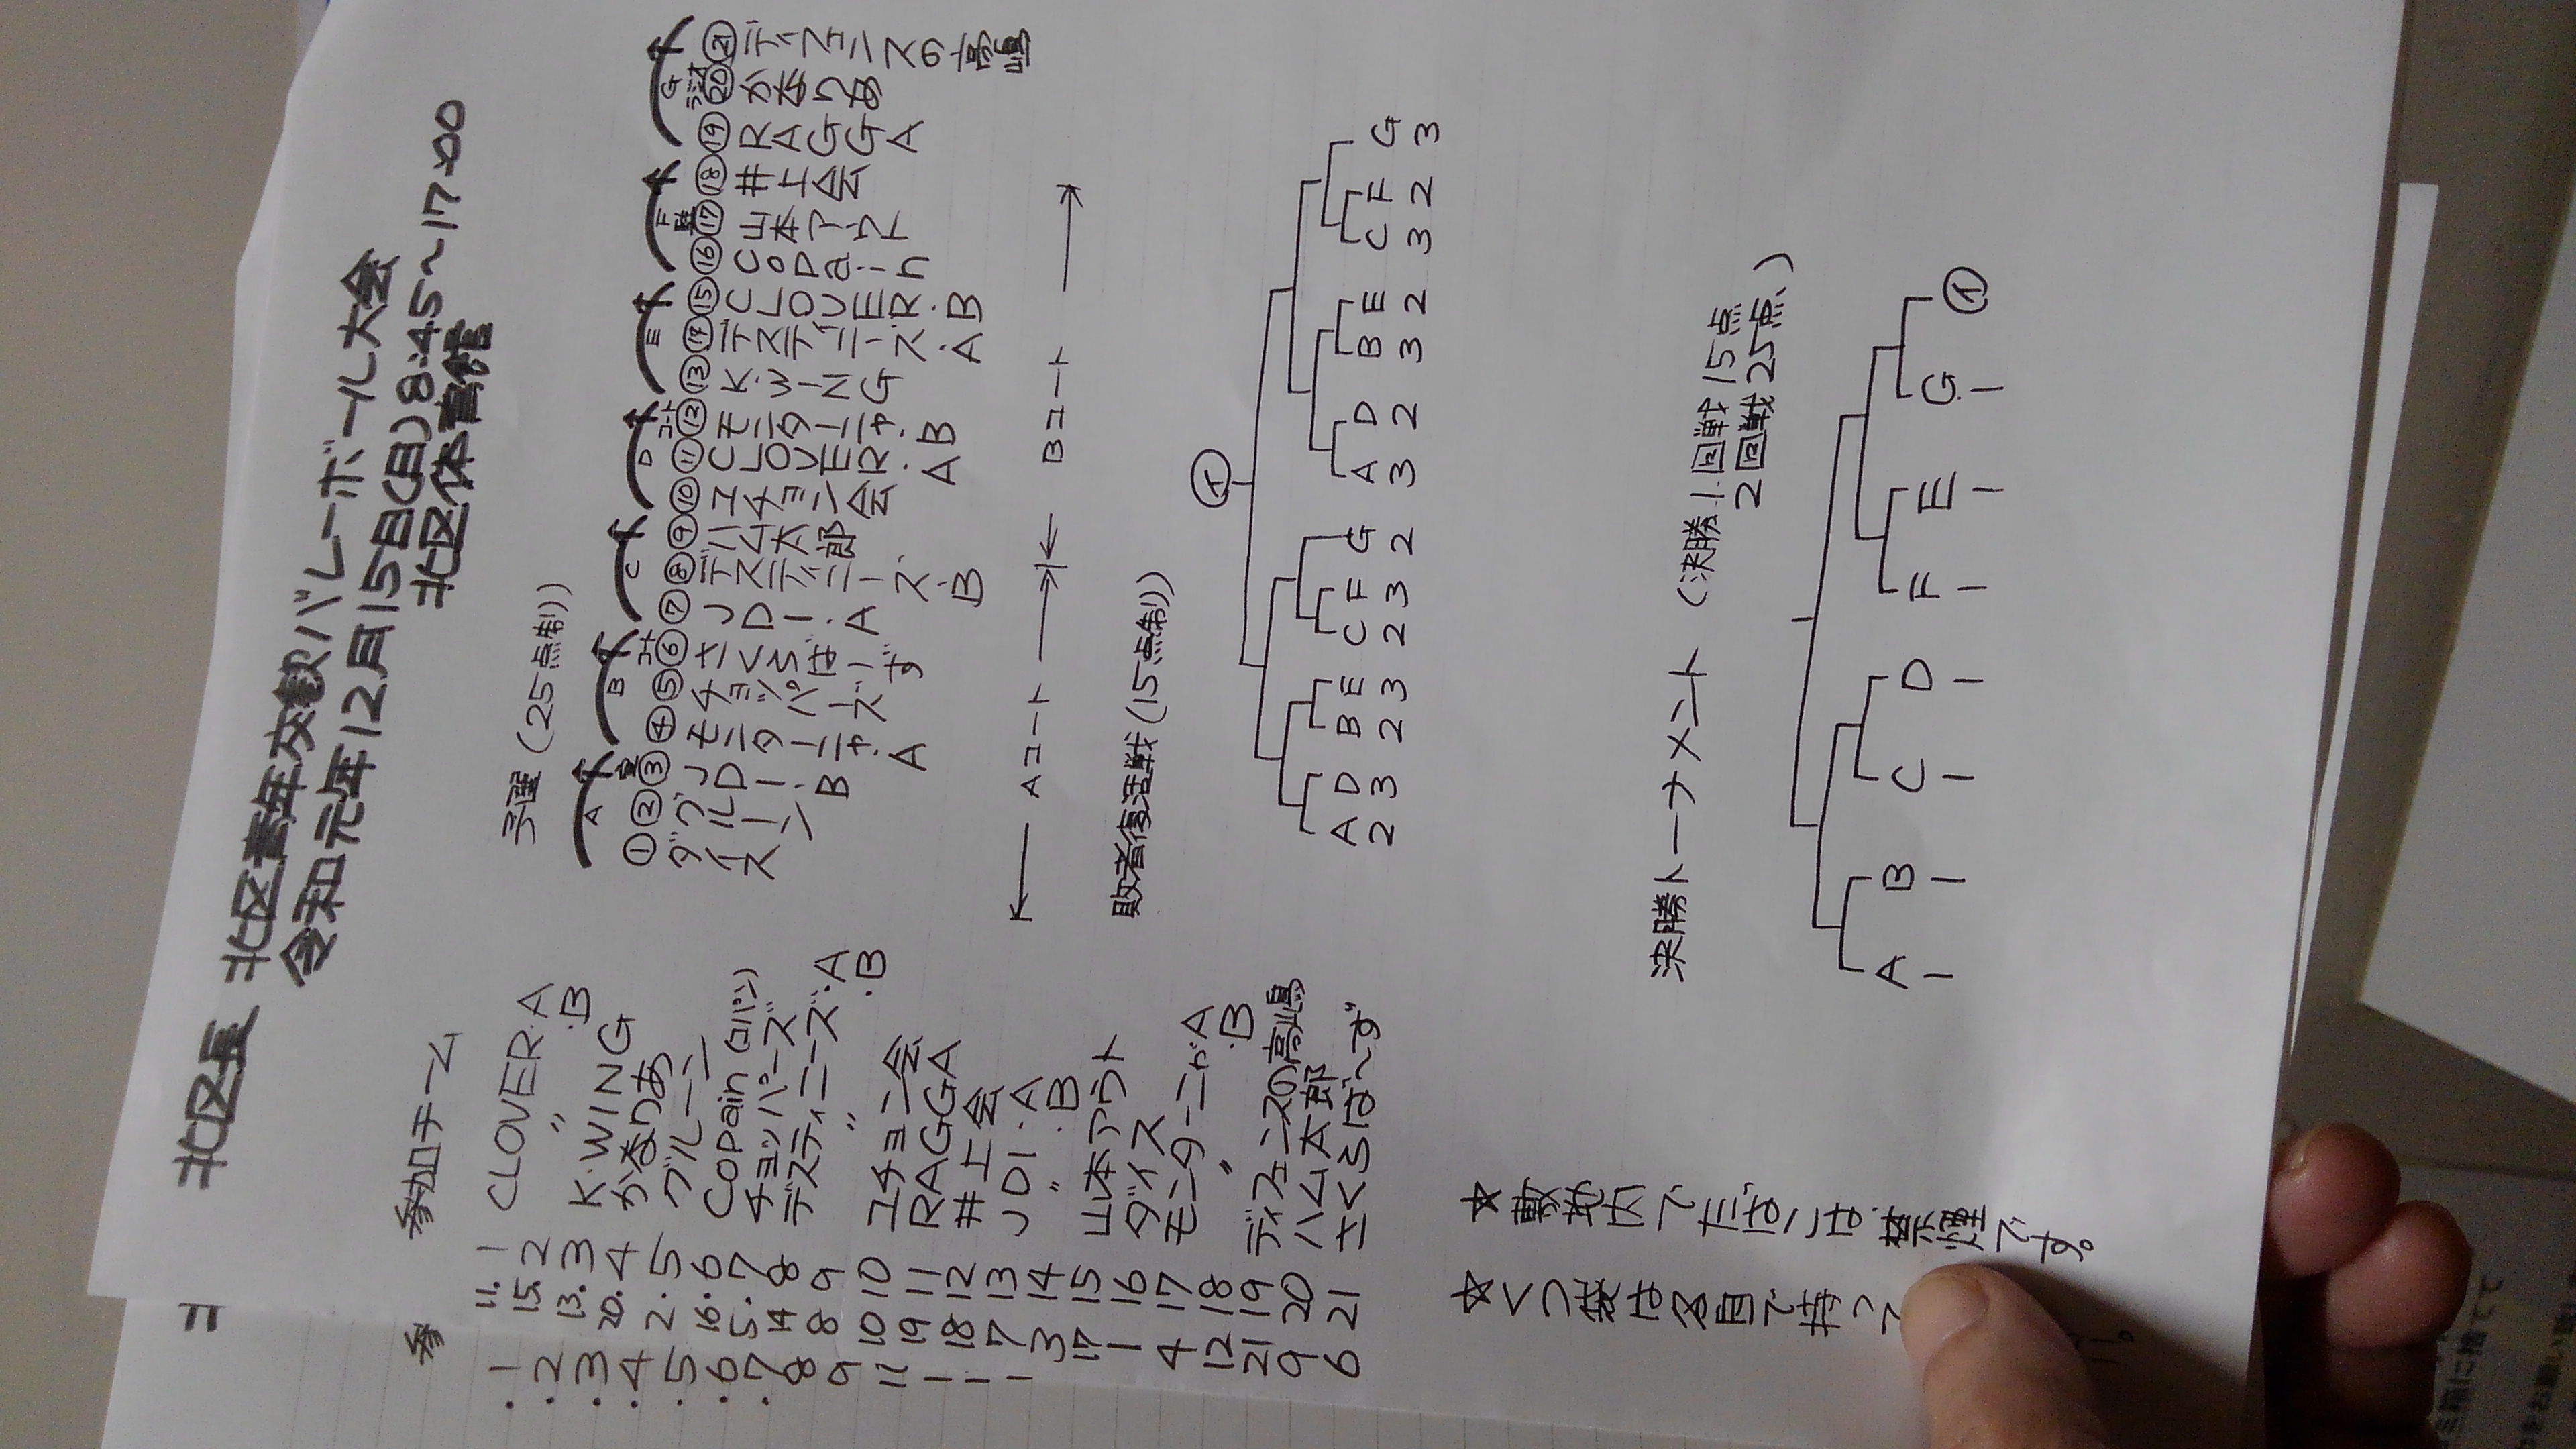 北区長 北区青年友歓バレーボール大会
令和元年12月15日(日)8:45〜17:00
北区体育館
参加チーム
11. 1 CLOVER・A
15. 2 〃 ・B
13. 3 K・WING
20. 4 かまりあ
2. 5 グルーン
16. 6 Copain(コパン)
5. 7 チョッパーズ
14 8 デスティニーズ・A
8 9 〃 ・B
10 10 ユチョン会
19 11 RAGGA
18 12 井上会
7 13 JDI・A
3 14 〃 ・B
17 15 山本アウト
1 16 ダイス
4 17 モンターニャA
12 18 〃 ・B
21 19 ディフェンスの高嶋
9 20 ハム太郎
6 21 さくらば〜ず
☆敷地内でたばこは禁煙です。
☆くつ袋は各自で持って
予選(25点制)
A B C D E F G
① ダイス
② グルーン
③ JDI・B
④ モンターニャ・A
⑤ チョッパーズ
⑥ さくらばーず
⑦ JDI・A
⑧ デスティニーズ・B
⑨ ハム太郎
⑩ ユチョン会
⑪ CLOVER・A
⑫ モンターニャ・B
⑬ K・WING
⑭ デスティニーズ・A
⑮ CLOVER・B
⑯ Copain
⑰ 山本アウト
⑱ 井上会
⑲ RAGGA
⑳ かまりあ
㉑ ディフェンスの高嶋
Aコート Bコート
敗者復活戦(15点制)
①
A D B E C F G A D B E C F G
2 3 2 3 2 3 2 3 2 3 2 3 2 3
決勝トーナメント(決勝1回戦15点
2回戦25点)
A B C D F E G ①
1 1 1 1 1 1 1
参
・1
・2
・3
・4
・5
・6
・7
8
9